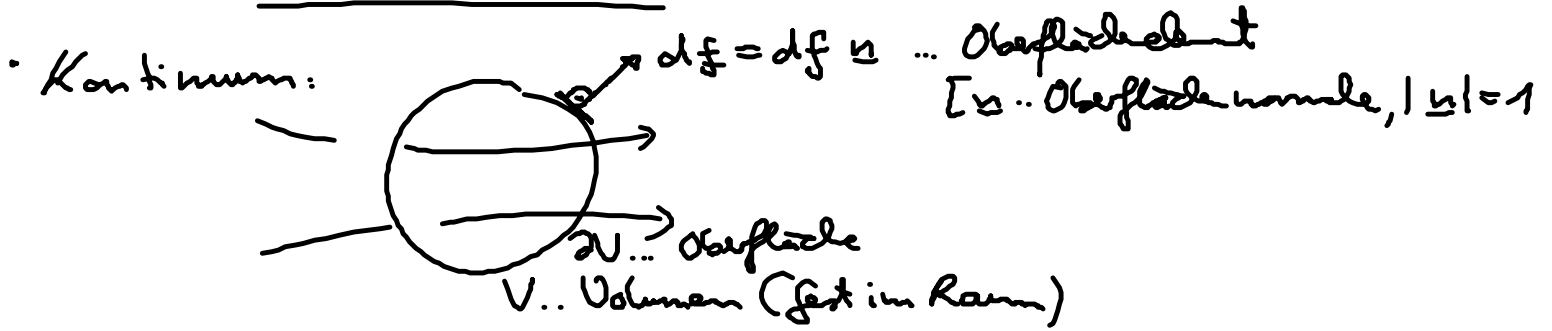 · Kontinuum:
d<u>f</u> = df <u>n</u> ... Oberflächenelement
[<u>n</u> .. Oberflächennormale, |<u>n</u>| = 1
∂V ... Oberfläche
V .. Volumen (fest im Raum)